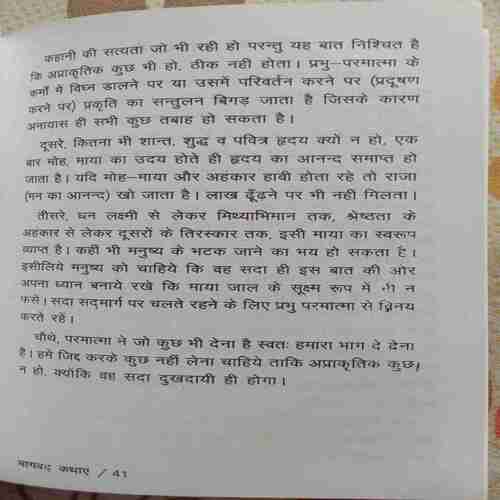 कहानी की सत्यता जो भी रही हो परन्तु यह बात निश्चित है
कि अप्राकृतिक कुछ भी हो, ठीक नही होता। प्रभु–परमात्मा के
कर्मों में विघ्न डालने पर या उसमें परिवर्तन करने पर (प्रदूषण
करने पर) प्रकृति का सन्तुलन बिगड़ जाता है जिसके कारण
अनायास ही सभी कुछ तबाह हो सकता है।
दूसरे, कितना भी शान्त, शुद्ध व पवित्र हृदय क्यों न हो, एक
बार मोह, माया का उदय होते ही हृदय का आनन्द समाप्त हो
जाता है। यदि मोह–माया और अहंकार हावी होता रहे तो राजा
(मन का आनन्द) खो जाता है। लाख ढूँढ़ने पर भी नही मिलता।
तीसरे, धन लक्ष्मी से लेकर मिथ्याभिमान तक, श्रेष्ठता के
अहंकार से लेकर दूसरों के तिरस्कार तक, इसी माया का स्वरूप
व्याप्त है। कहीं भी मनुष्य के भटक जाने का भय हो सकता है।
इसीलिये मनुष्य को चाहिये कि वह सदा ही इस बात की ओर
अपना ध्यान बनाये रखे कि माया जाल के सूक्ष्म रूप में भी न
फंसे। सदा सद्मार्ग पर चलते रहने के लिए प्रभु परमात्मा से विनय
करते रहें।
चौथे, परमात्मा ने जो कुछ भी देना है स्वतः हमारा भाग दे देना
है। हमे जिद्द करके कुछ नहीं लेना चाहिये ताकि अप्राकृतिक कुछ
न हो, क्योंकि वह सदा दुखदायी ही होगा।
भागवद् कथाएं / 41